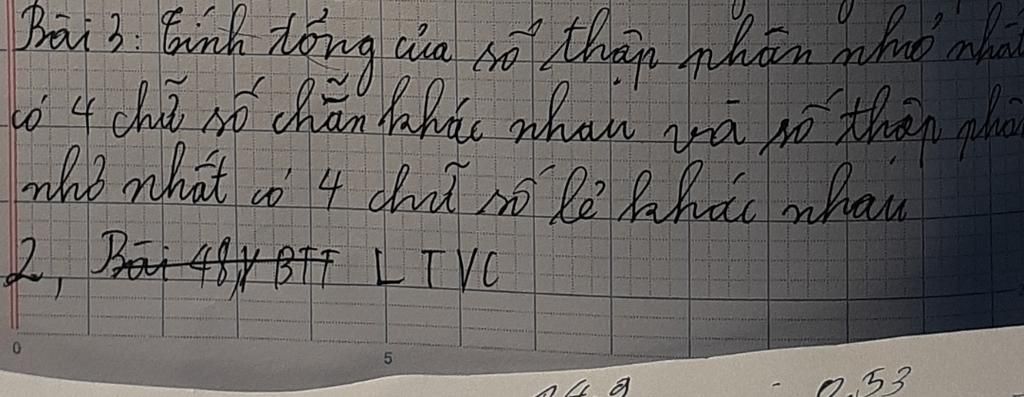 Bài 3: Tính tổng của số thập phân nhỏ nhất
có 4 chữ số chẵn khác nhau và số thập phân
nhỏ nhất có 4 chữ số lẻ khác nhau
2, Bài 48, V BTT LTVC
0 5
0,53